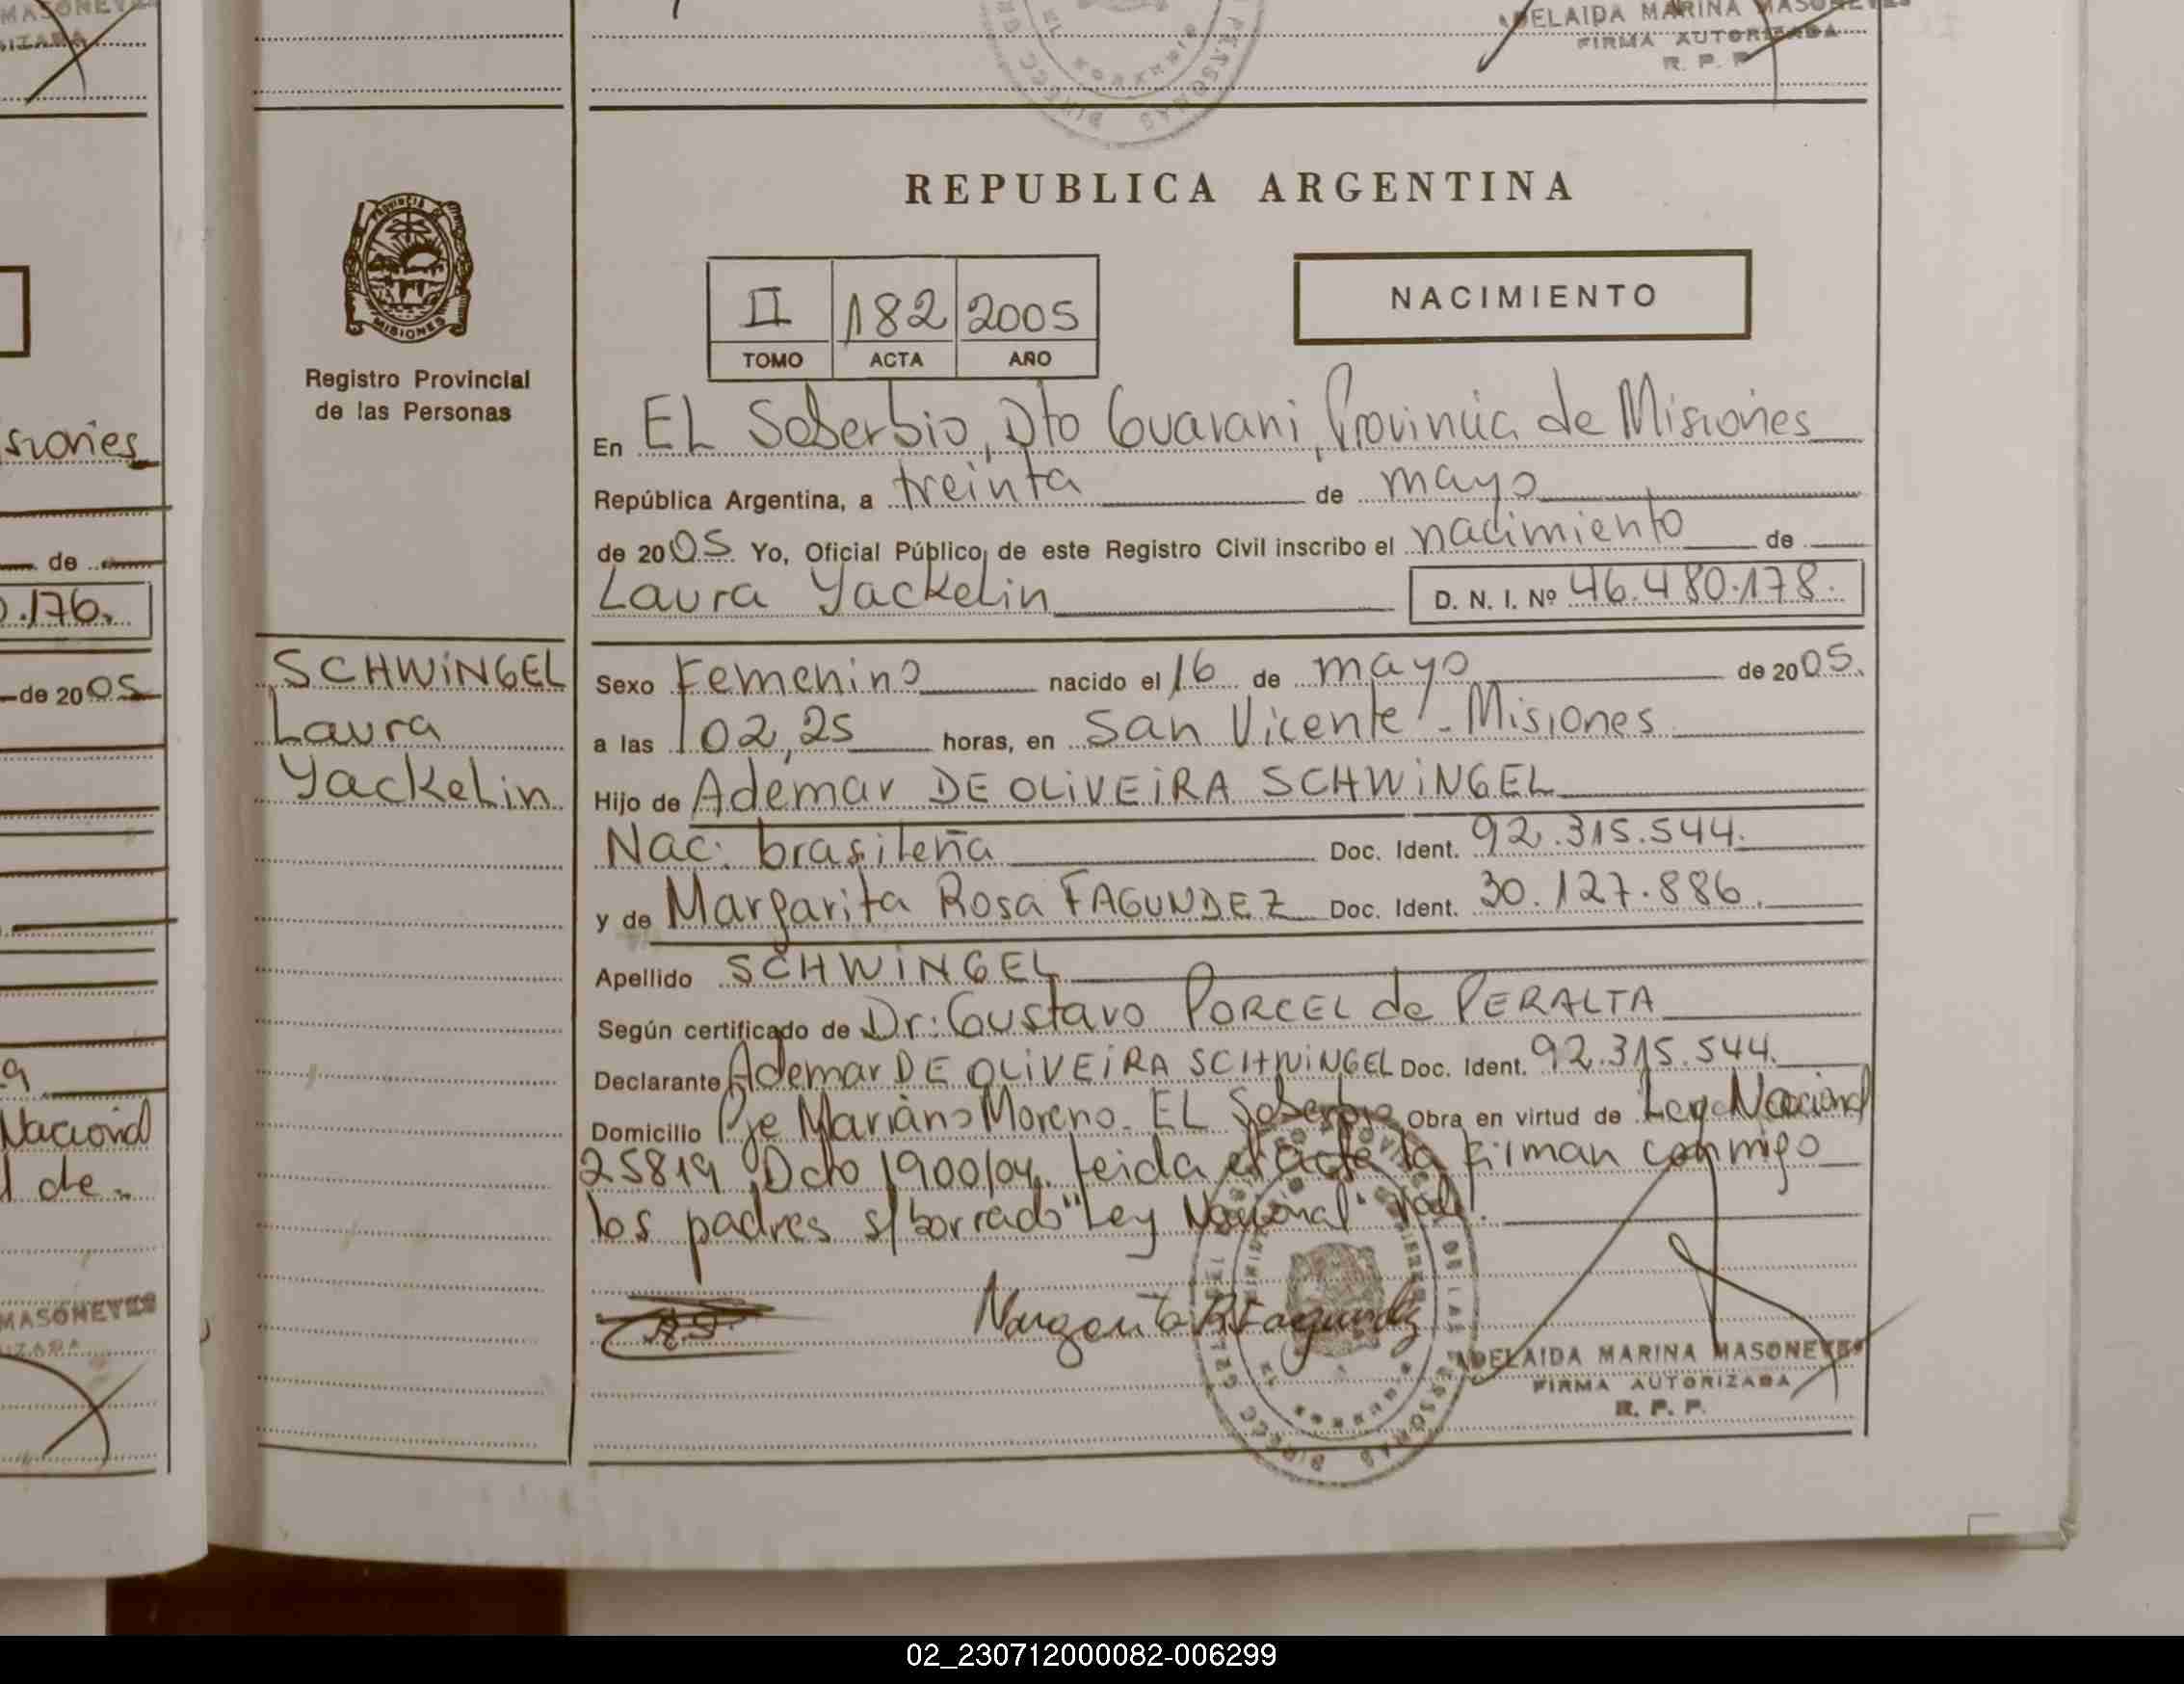 MASONEVES
IZADA
ADELAIDA MARINA MASONEVES
FIRMA AUTORIZADA
R. P. P.
REPUBLICA ARGENTINA
PROVINCIA DE
MISIONES
Registro Provincial
de las Personas
II 182 2005
TOMO ACTA AÑO
NACIMIENTO
En EL Soberbio, Dto Guarani, Provincia de Misiones
República Argentina, a treinta de mayo
de 2005 Yo, Oficial Público, de este Registro Civil inscribo el nacimiento de
Laura Yackelin D. N. I. Nº 46.480.178.
SCHWiNGEL
Laura
Yackelin
Sexo Femenino nacido el 16 de mayo de 2005.
a las 02,25 horas, en San Vicente - Misiones
Hijo de Ademar DE OLiVEiRA SCHWiNGEL
Nac. brasileña Doc. Ident. 92.315.544.
y de Margarita Rosa FAGUNDEZ Doc. Ident. 30.127.886.
Apellido SCHWiNGEL
Según certificado de Dr: Gustavo PORCEL de PERALTA
Declarante Ademar DE OLiVEiRA SCHWiNGEL Doc. Ident. 92.315.544.
Domicilio Pje Mariano Moreno - EL Soberbio Obra en virtud de Ley Nacional
25819 Dcto 1900/04. Leida el acta la firman conmigo
los padres s/borrado "Ley Nacional" Vale.
Margarita R Fagundez
ADELAIDA MARINA MASONEVES
FIRMA AUTORIZADA
R. P. P.
siones
de
0.176.
de 2005
Nacional
l de
MASONEVES
IZADA
02_230712000082-006299